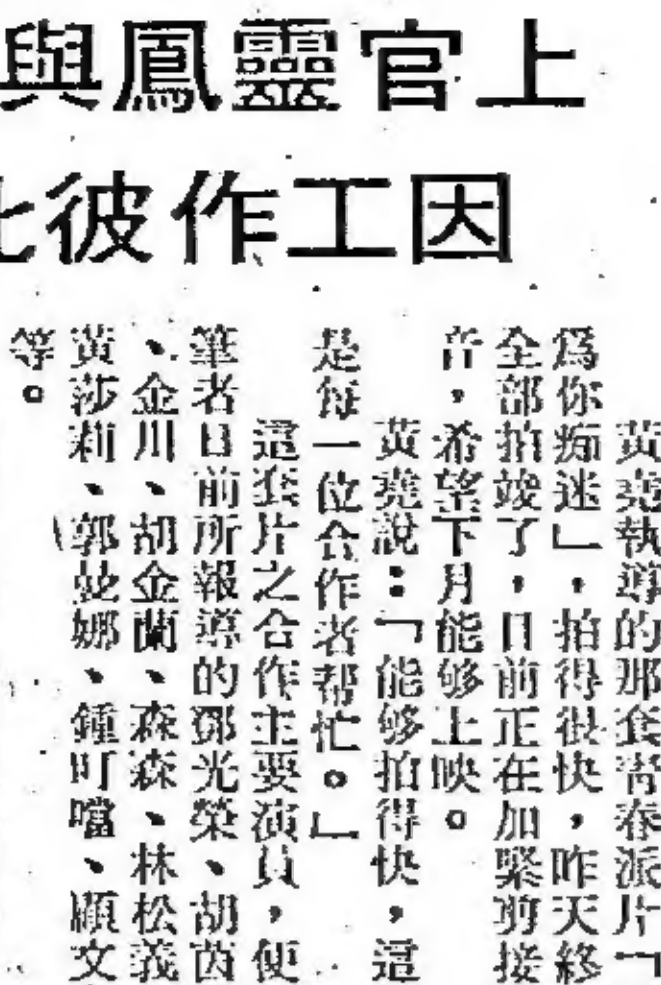 上官靈鳳與
因工作彼
黃堯執導的那套青春派片「
為你痴迷」，拍得很快，昨天終
全部拍竣了，目前正在加緊剪接
音，希望下月能够上映。
黃堯說：「能够拍得快，這
是每一位合作者帮忙。」
這套片之合作主要演員，便
筆者日前所報導的鄧光榮、胡茵
、金川、胡金蘭、森森、林松義
黃莎莉、郭曼娜、鍾叮噹、顧文
等。